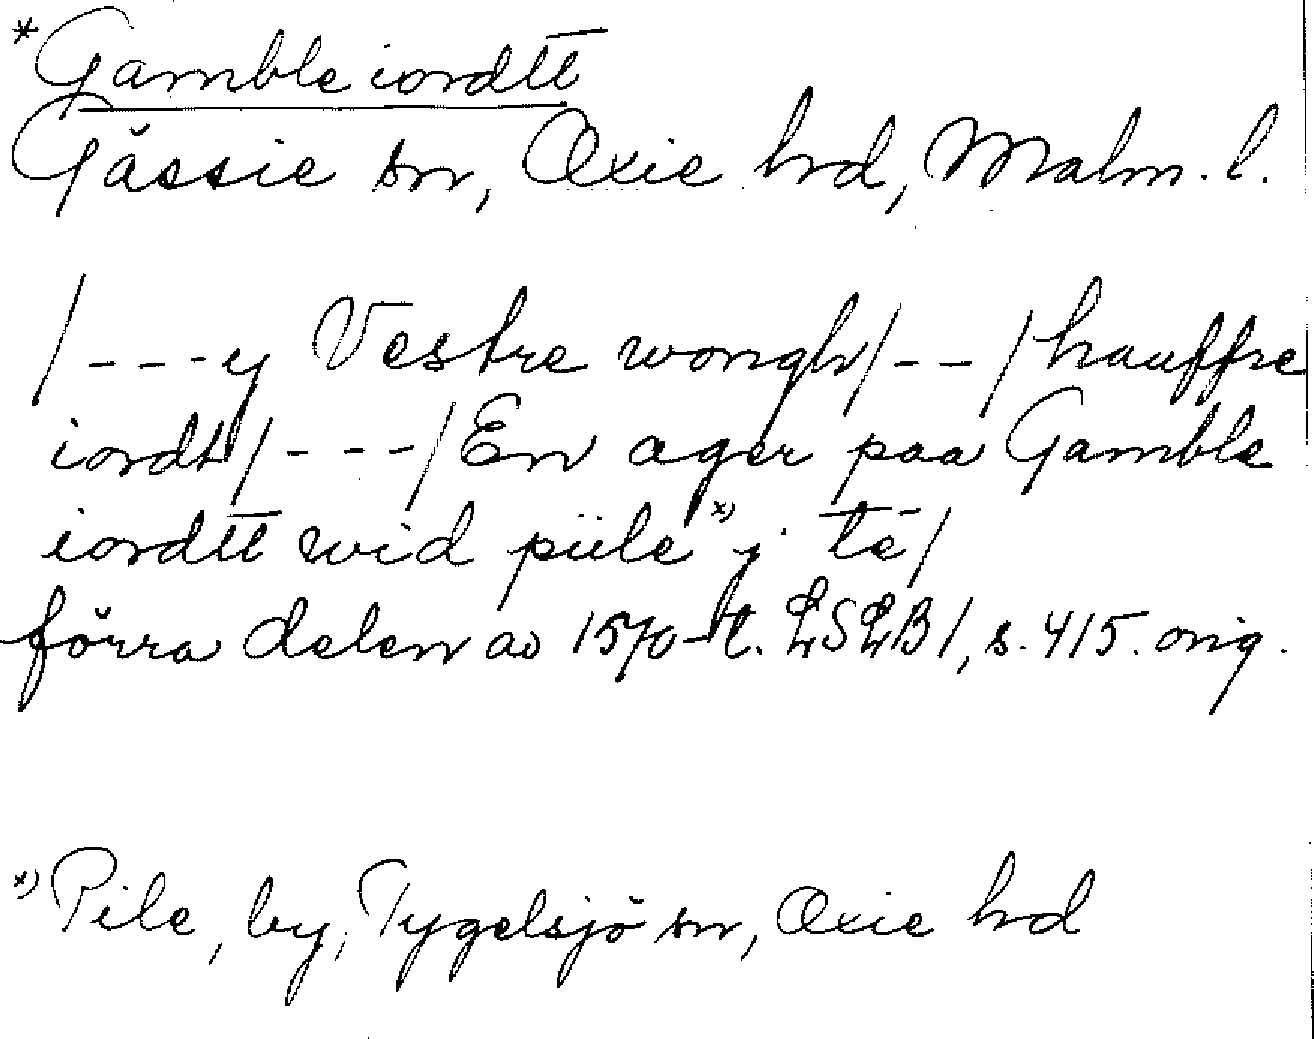 *Gamble iordtt
Gässie sn, Oxie hrd, Malm. l.
/---y Vestre wongh/--/hauffre
iordt/---/En ager paa Gamble
iordtt wid piile x) j té/
förra delen av 1570-t. LSLB1, s. 415. orig.
x) Pile, by, Tygelsjö sn, Oxie hrd